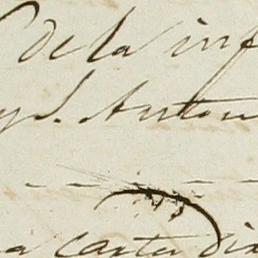 de la inf
y S. Anton
a carta dix